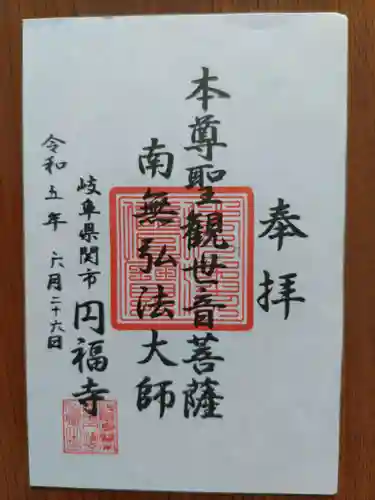 奉拝
本尊聖觀世音菩薩
南無弘法大師
岐阜県関市
円福寺
令和五年 六月二十六日